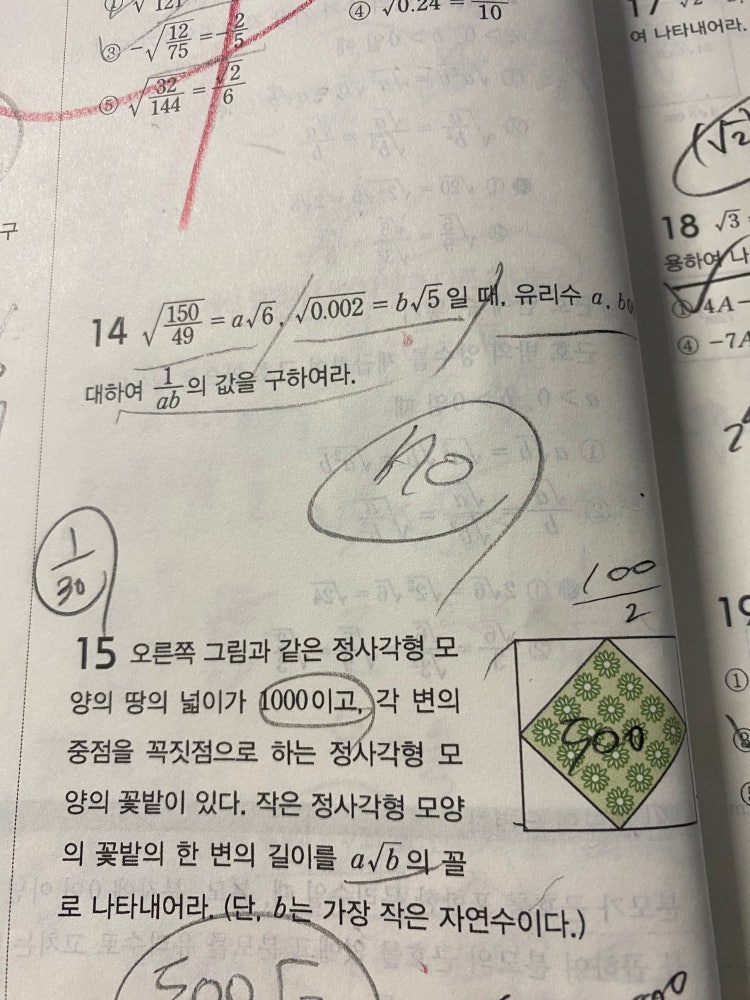 ④ √0.24 = /10
③ -√(12/75) = -2/5
⑤ √(32/144) = √2/6
14 √(150/49) = a√6, √0.002 = b√5일 때, 유리수 a, b
대하여 1/ab의 값을 구하여라.
1/30
100/2
15 오른쪽 그림과 같은 정사각형 모
양의 땅의 넓이가 1000이고, 각 변의
중점을 꼭짓점으로 하는 정사각형 모
양의 꽃밭이 있다. 작은 정사각형 모양
의 꽃밭의 한 변의 길이를 a√b의 꼴
로 나타내어라. (단, b는 가장 작은 자연수이다.)
500
구
17
여 나타내어라.
(√2
18 √3
용하여 나
① 4A-
④ -7A
19
①